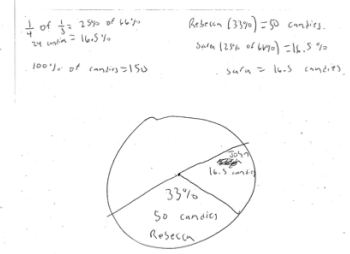 1/4 of 1/3 = 25% of 66%
= 16.5%
100% of candies = 150
Rebecca (33%) = 50 candies.
Sara (25% of 66%) = 16.5%
Sara = 16.5 candies.
John
16.5 candies
33%
50 candies
Rebecca